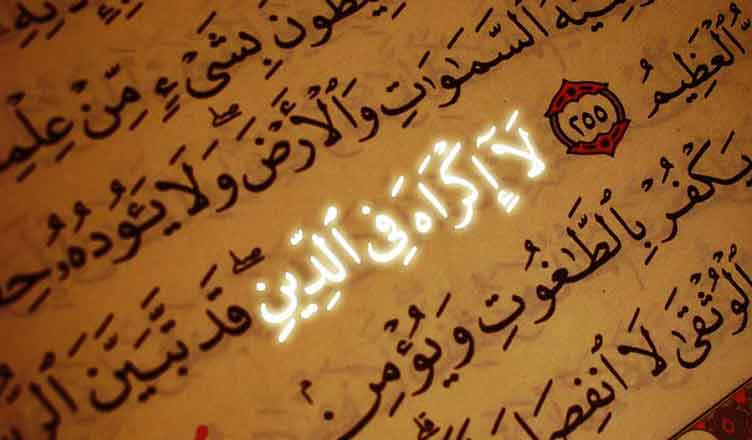 يطُونَ بِشَىْءٍ مِّنْ عِلْمِ
ٱلسَّمَٰوَٰتِ وَٱلْأَرْضَ ۖ وَلَا يَـُٔودُهُۥ حِ
ٱلْعَظِيمُ ٢٥٥ لَآ إِكْرَاهَ فِى ٱلدِّينِ ۖ قَد تَّبَيَّنَ ٱلرُّ
يَكْفُرْ بِٱلطَّٰغُوتِ وَيُؤْمِنۢ
ٱلْوُثْقَىٰ لَا ٱنفِصَا